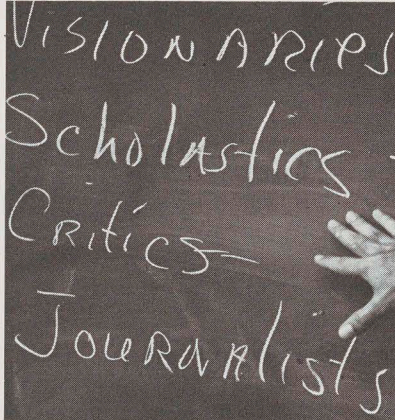 VISIONARIES
Scholastics -
CRitics
JouRNAlists